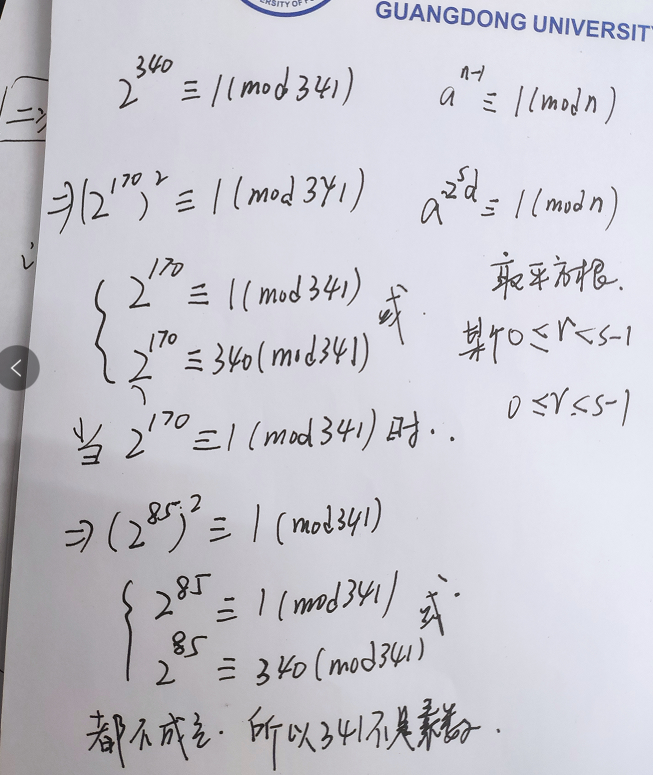 GUANGDONG UNIVERSIT
2^340 ≡ 1(mod 341)
a^n-1 ≡ 1(mod n)
⇒(2^170)^2 ≡ 1(mod 341)
a^2^s d ≡ 1(mod n)
取平方根.
{ 2^170 ≡ 1(mod 341) 或.
2^170 ≡ 340(mod 341)
某个 0 ≤ r < s-1
0 ≤ r ≤ s-1
当 2^170 ≡ 1(mod 341) 时..
⇒(2^85)^2 ≡ 1(mod 341)
{ 2^85 ≡ 1(mod 341) 或.
2^85 ≡ 340(mod 341)
都不成立. 所以341不是素数.